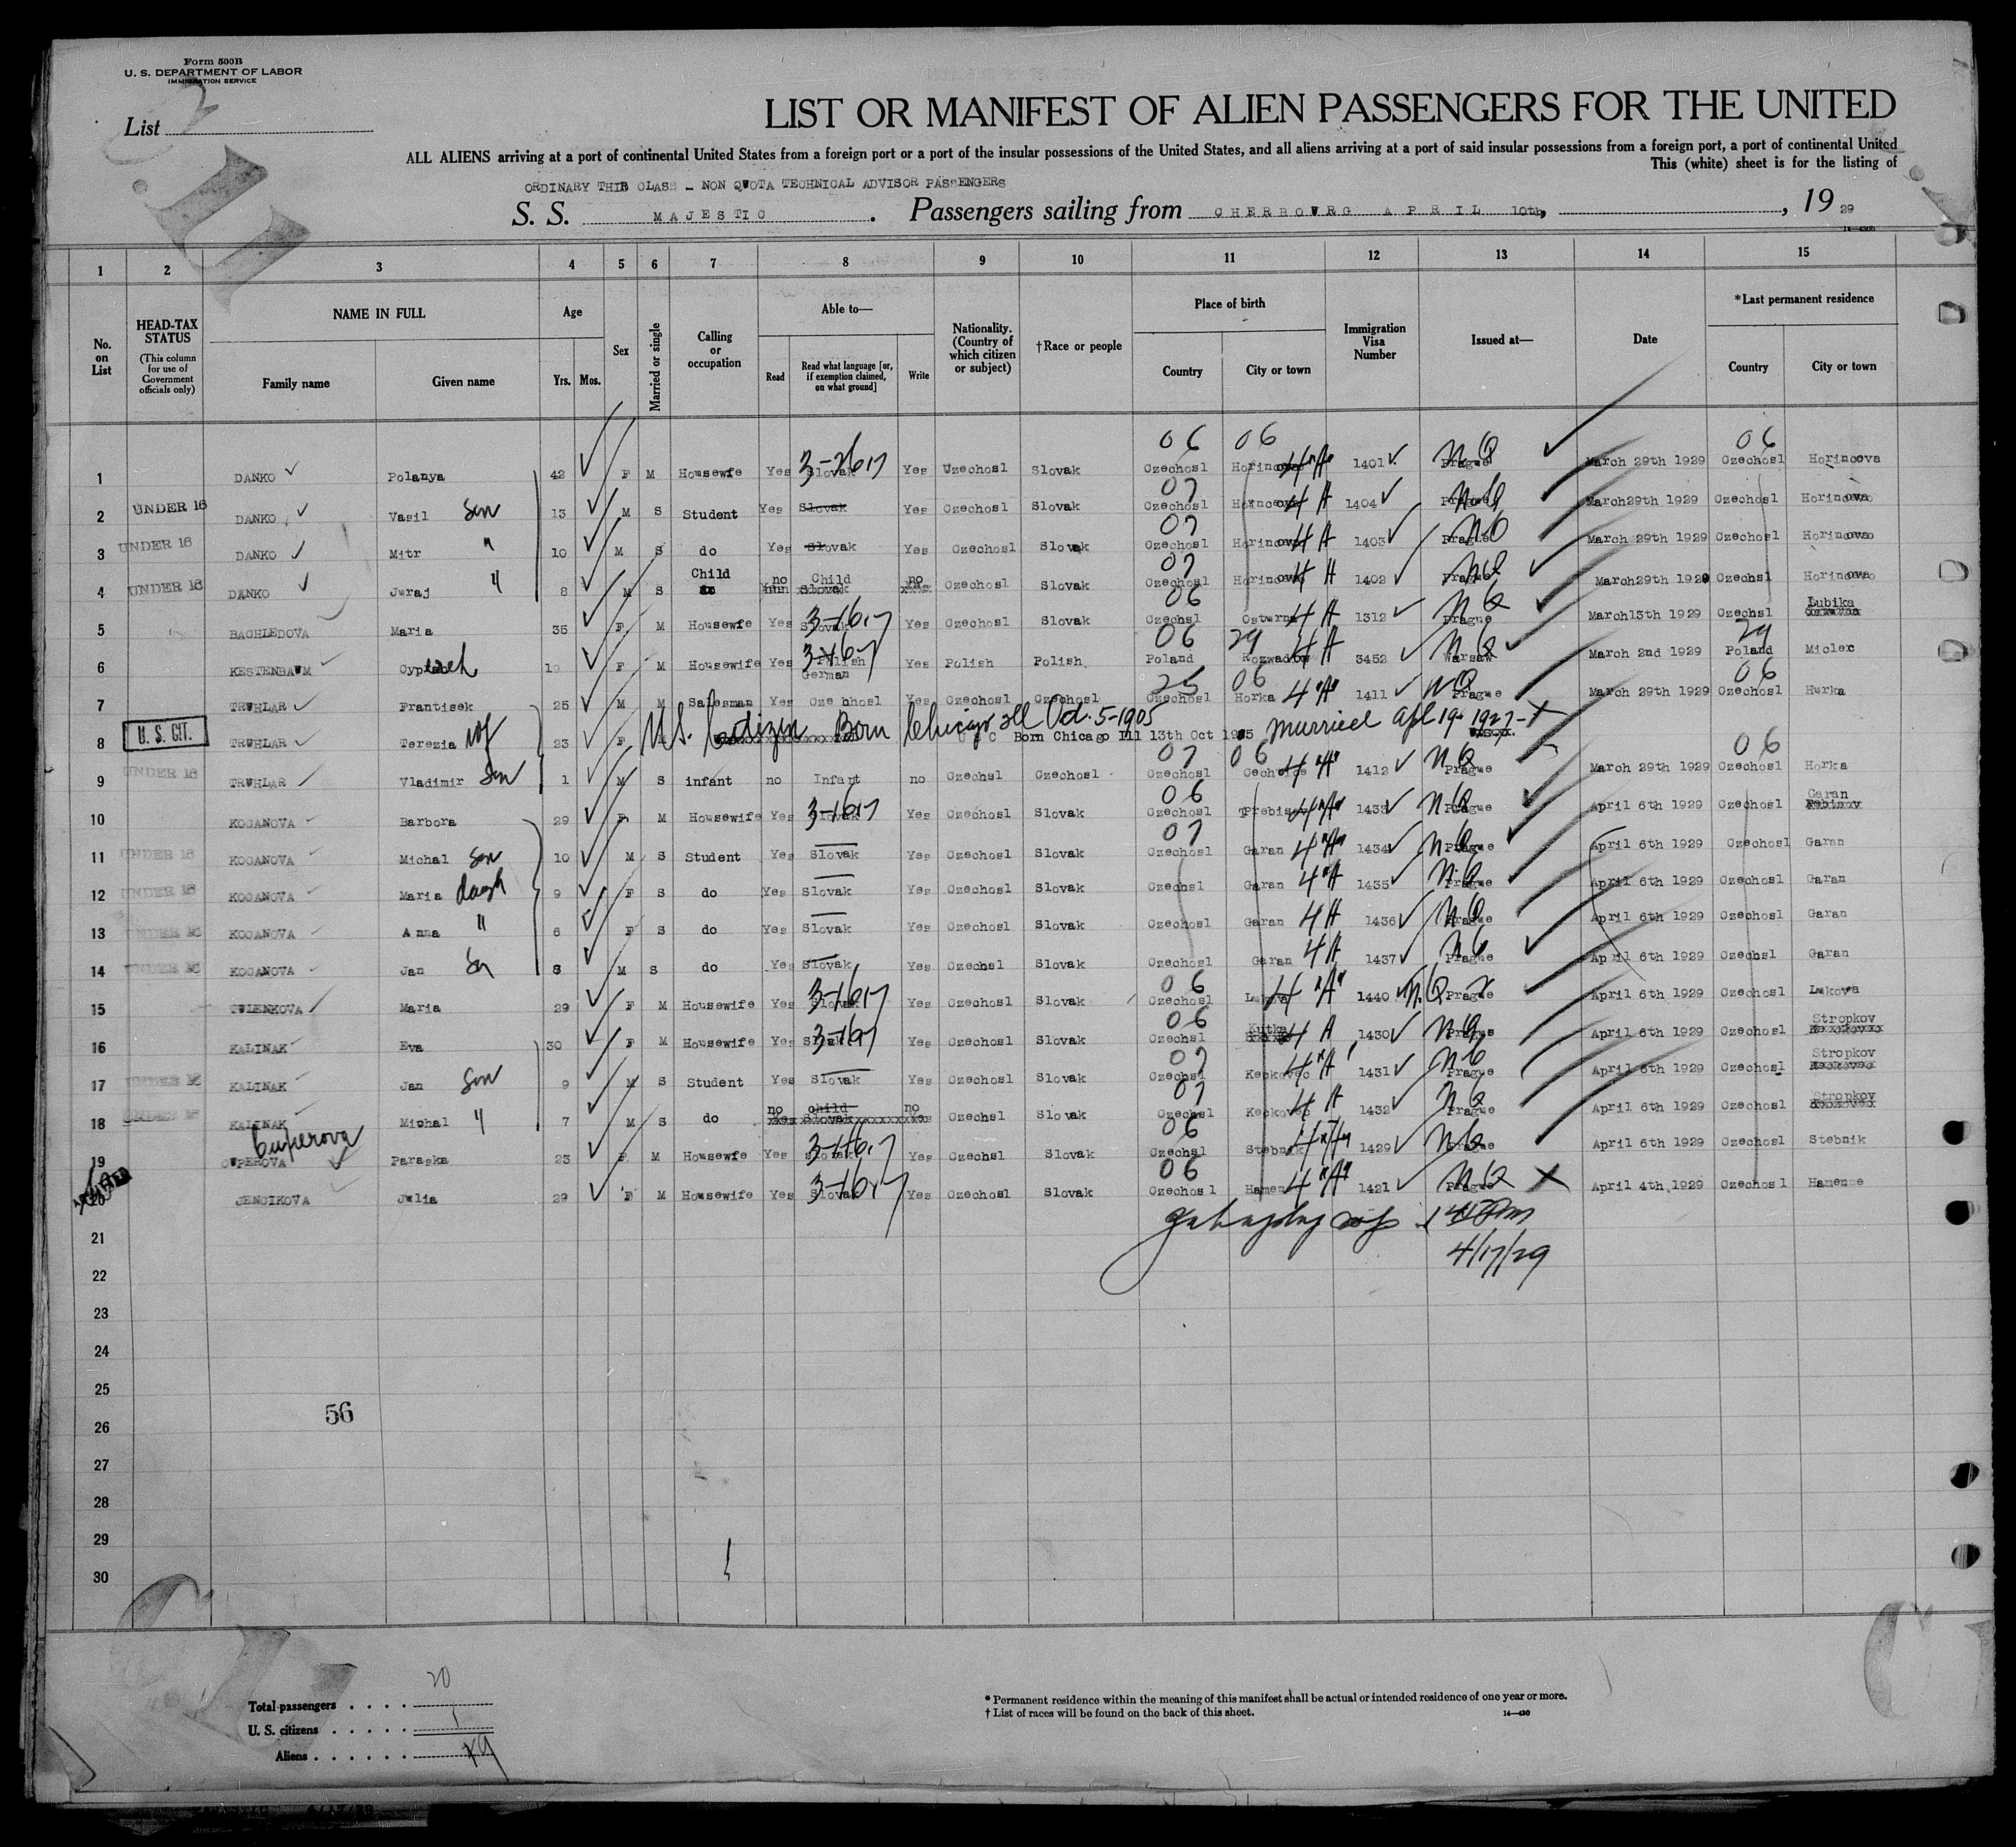 Form 500B
U. S. DEPARTMENT OF LABOR
IMMIGRATION SERVICE
List
LIST OR MANIFEST OF ALIEN PASSENGERS FOR THE UNITED
ALL ALIENS arriving at a port of continental United States from a foreign port or a port of the insular possessions of the United States, and all aliens arriving at a port of said insular possessions from a foreign port, a port of continental United
This (white) sheet is for the listing of
ORDINARY THIR CLASS - NON QUOTA TECHNICAL ADVISOR PASSENGERS
S. S. MAJESTIC. Passengers sailing from CHERBOURG APRIL 10th, , 19 29
1 2 3 4 5 6 7 8 9 10 11 12 13 14 15
No. on List
HEAD-TAX STATUS (This column for use of Government officials only)
NAME IN FULL
Family name
Given name
Age
Yrs.
Mos.
Sex
Married or single
Calling or occupation
Able to—
Read
Read what language [or, if exemption claimed, on what ground]
Write
Nationality. (Country of which citizen or subject)
†Race or people
Place of birth
Country
City or town
Immigration Visa Number
Issued at—
Date
*Last permanent residence
Country
City or town
06 06 NQ 06
1 DANKO Polanya 42 F M Housewfe Yes Slovak Yes Czechosl Slovak Czechosl 1401 Prague March 29th 1929 Czechosl Horincova
07
2 UNDER 16 DANKO Vasil Son 13 M S Student Yes Slovak Yes Czechosl Slovak Czechosl 4 A 1404 March29th 1929 Czechosl Horincova
07
3 UNDER 16 DANKO Mitr " 10 M S do Yes Slovak Yes Czechosl Slovak Czechosl 4 A 1403 March 29th 1929 Czechosl Horincova
07
4 UNDER 16 DANKO Juraj " 8 M S Child no Child no Czechosl Slovak Czechosl 4 A 1402 Prague March29th 1929 Czechsl Horincova
06
5 BACHLEDOVA Maria 35 F M Housewfe Yes Slovak Yes Czechosl Slovak Czechsl Osturna 4 A 1312 NQ Prague March13th 1929 Czechsl Lubika
06 29 29
6 KESTENBAUM F M Housewife Yes Polish German Yes Polish Polish Poland Rozwadow 4 A 3452 NQ Warsaw March 2nd 1929 Poland Mielec
25 06 06
7 TRUHLAR Frantisek 25 M M Salesman Yes Cze hosl Yes Czechosl Czechosl Czechosl Horka 4 "A" 1411 NQ Prague March 29th 1929 Czechosl Horka
8 U. S. CIT. TRUHLAR Terezia wf 23 F U.S. Citizen Born Chicago Ill Oct. 5-1905 U S C Born Chicago Ill 13th Oct married Apl 19- 1927- X
07 06 06
9 UNDER 16 TRUHLAR Vladimir Son 1 M S infant no Infant no Czechsl Czechosl Czechosl 4 "A" 1412 NQ Prague March 29th 1929 Czechosl Horka
06
10 KOCANOVA Barbora 29 F M Housewife Yes Slovak Yes Czechosl Slovak Czechosl 1433 NQ Prague April 6th 1929 Czechosl Garan
07
11 UNDER 16 KOCANOVA Michal Son 10 M S Student Yes Slovak Yes Czechosl Slovak Czechosl Garan 4 "A" 1434 NQ Prague April 6th 1929 Czechosl Garan
12 UNDER 16 KOCANOVA Maria daugh 9 F S do Yes Slovak Yes Czechosl Slovak Czechsl Garan 4 "A" 1435 NQ Prague April 6th 1929 Czechosl Garan
13 UNDER 16 KOCANOVA Anna " 6 F S do Yes Slovak Yes Czechosl Slovak Czechosl Garan 4 A 1436 NQ Prague April 6th 1929 Czechosl Garan
14 UNDER 16 KOCANOVA Jan Son M S do Yes Slovak Yes Czechsl Slovak Czechosl Garan 4 A 1437 NQ Prague April 6th 1929 Czechsl Garan
06
15 TULENKOVA Maria 29 F M Housewife Yes Slovak Yes Czechosl Slovak Czechosl 4 "A" 1440 NQ Prague April 6th 1929 Czechosl Lukova
06
16 KALINAK Eva 30 F M Housewife Yes Slovak Yes Czechosl Slovak Czechsl Kutka 4 A 1430 NQ Prague April 6th 1929 Czechosl Stropkov
07
17 UNDER 16 KALINAK Jan Son 9 M S Student Yes Slovak Yes Czechosl Slovak Czechsl Keckovec 4 "A" 1431 NQ Prague April 6th 1929 Czechosl Stropkov
07
18 UNDER 16 KALINAK Michal " 7 M S do no child no Czechsl Slovak Czechsl Keckovec 4 A 1432 NQ Prague April 6th 1929 Czechosl Stropkov
Cuperova 06
19 CUPEROVA Paraska 23 F M Housewfe Yes Slovak Yes Czechsl Slovak Czechsl Stebnik 1429 NQ Prague April 6th 1929 Czechosl Stebnik
06
20 JENCIKOVA Julia 29 F M Housewife Yes Slovak Yes Czechosl Slovak Czechosl 4 "A" 1421 NQ Prague X April 4th, 1929 Czechosl Hamenne
21
4/17/29
22
23
24
25
26
56
27
28
29
30
Total passengers . . . . 20
U. S. citizens . . . . . 1
Aliens . . . . . . 19
* Permanent residence within the meaning of this manifest shall be actual or intended residence of one year or more.
† List of races will be found on the back of this sheet.